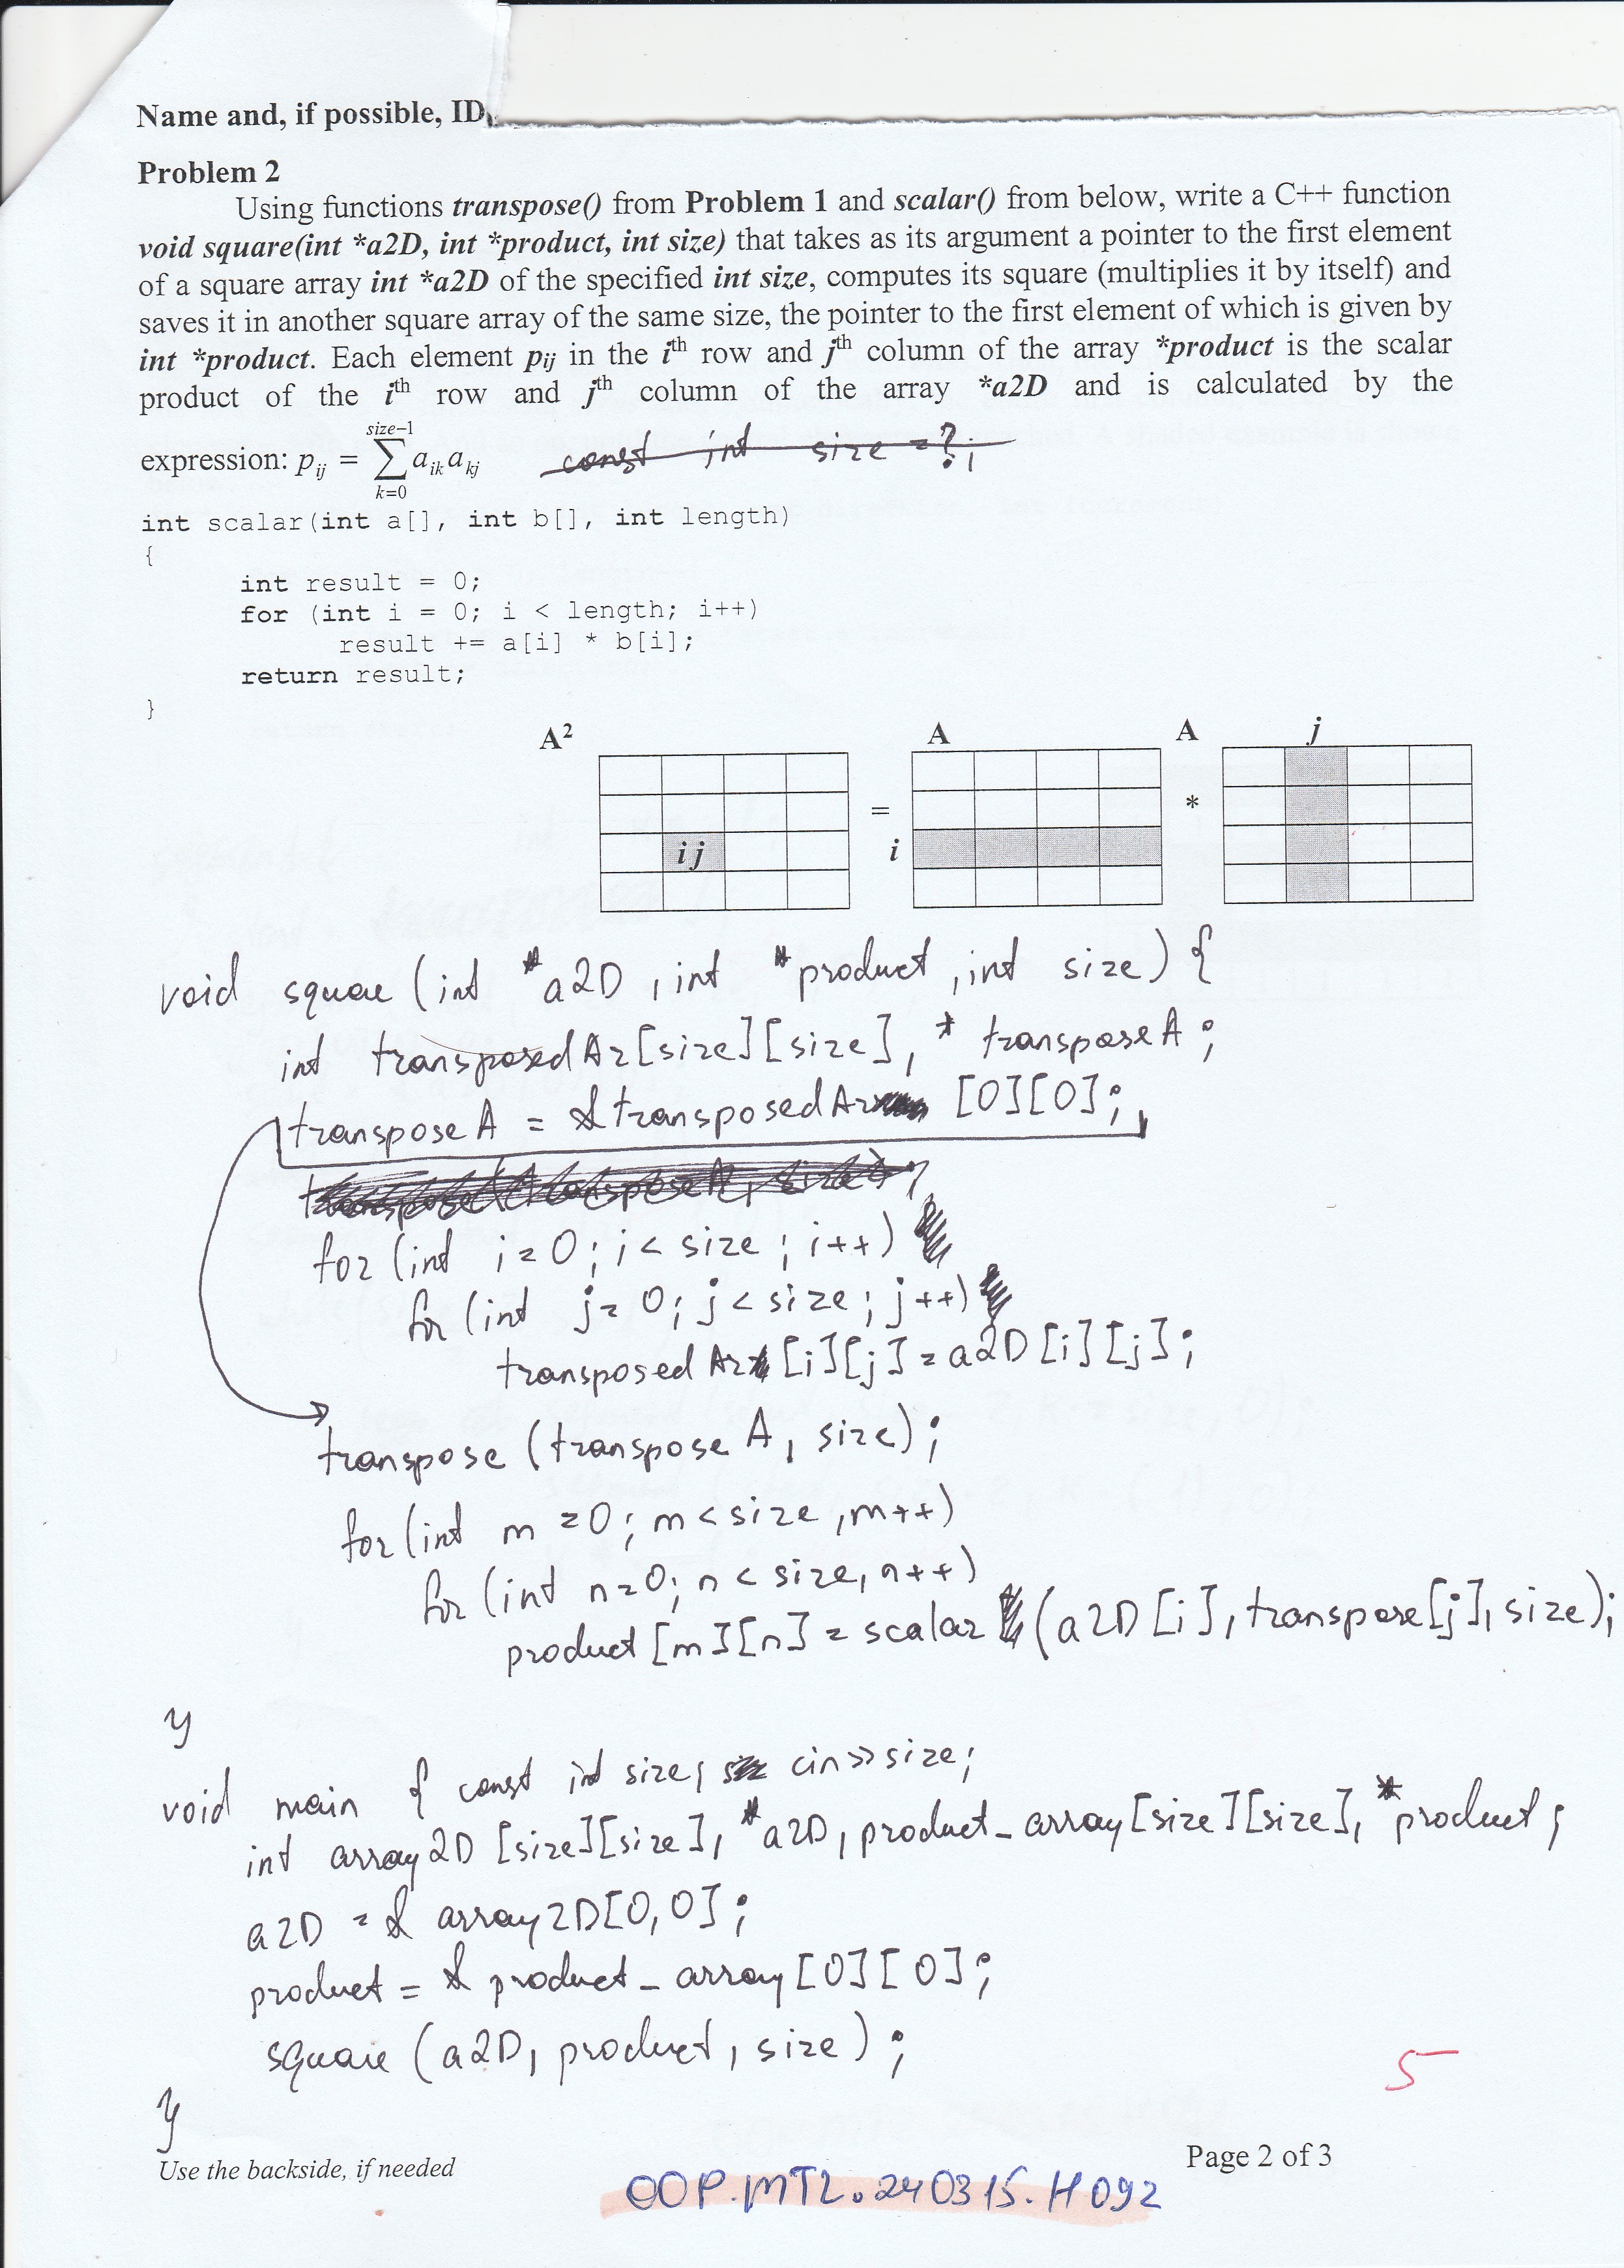 Name and, if possible, ID
Problem 2
Using functions transpose() from Problem 1 and scalar() from below, write a C++ function
void square(int *a2D, int *product, int size) that takes as its argument a pointer to the first element
of a square array int *a2D of the specified int size, computes its square (multiplies it by itself) and
saves it in another square array of the same size, the pointer to the first element of which is given by
int *product. Each element pij in the ith row and jth column of the array *product is the scalar
product of the ith row and jth column of the array *a2D and is calculated by the
expression: pij = size-1 ∑ k=0 aik akj const int size = ?;
int scalar(int a[], int b[], int length)
{
int result = 0;
for (int i = 0; i < length; i++)
result += a[i] * b[i];
return result;
}
A² A A j
= *
i j i
void square (int *a2D, int *product, int size) {
int transposedAr[size][size], * transposeA;
transposeA = &transposedAr [0][0];
for (int i=0; i< size; i++)
for (int j=0; j<size; j++)
transposedAr[i][j]=a2D[i][j];
transpose (transposeA, size);
for (int m=0; m<size, m++)
for (int n=0; n<size, n++)
product [m][n] = scalar (a2D[i], transpose[j], size);
}
void main { const int size; cin>>size;
int array2D [size][size], *a2D, product_array[size][size], *product;
a2D = & array2D[0,0];
product = & product_array[0][0];
square (a2D, product, size);
}
5
Use the backside, if needed
Page 2 of 3
OOP.MT2.240315.H092